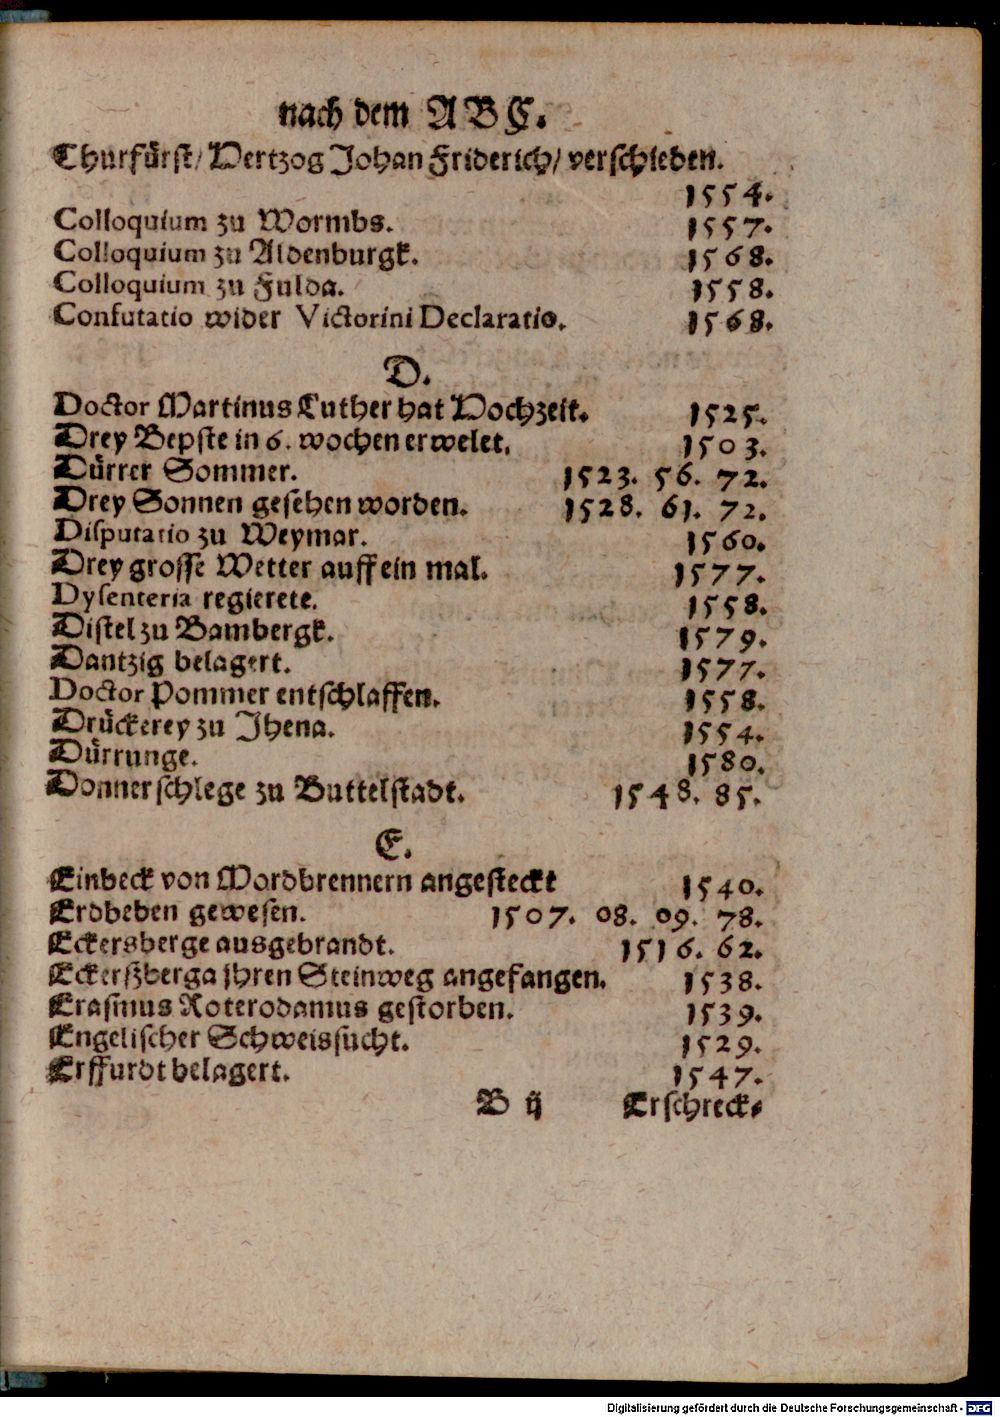 nach dem ABC.
Churfürst/ Hertzog Johan Friderich/ verschieden.
1554.
Colloquium zu Wormbs. 1557.
Colloquium zu Aldenburgk. 1568.
Colloquium zu Fulda. 1558.
Confutatio wider Victorini Declaratio. 1568.
D.
Doctor Martinus Luther hat Hochzeit. 1525.
Drey Bepste in 6. wochen erwelet. 1503.
Dürrer Sommer. 1523. 56. 72.
Drey Sonnen gesehen worden. 1528. 61. 72.
Disputatio zu Weymar. 1560.
Drey grosse Wetter auff ein mal. 1577.
Dysenteria regierete. 1558.
Distel zu Bambergk. 1579.
Dantzig belagert. 1577.
Doctor Pommer entschlaffen. 1558.
Drückerey zu Jhena. 1554.
Dürrunge. 1580.
Donnerschlege zu Buttelstadt. 1548. 85.
E.
Einbeck von Mordbrennern angesteckt 1540.
Erdbeben gewesen. 1507. 08. 09. 78.
Eckersberge ausgebrandt. 1516. 62.
Eckerßberga jhren Steinweg angefangen. 1538.
Erasmus Roterodamus gestorben. 1539.
Engelischer Schweissucht. 1529.
Erffurdt belagert. 1547.
B ij Erschreck⸗
Digitalisierung gefördert durch die Deutsche Forschungsgemeinschaft - DFG